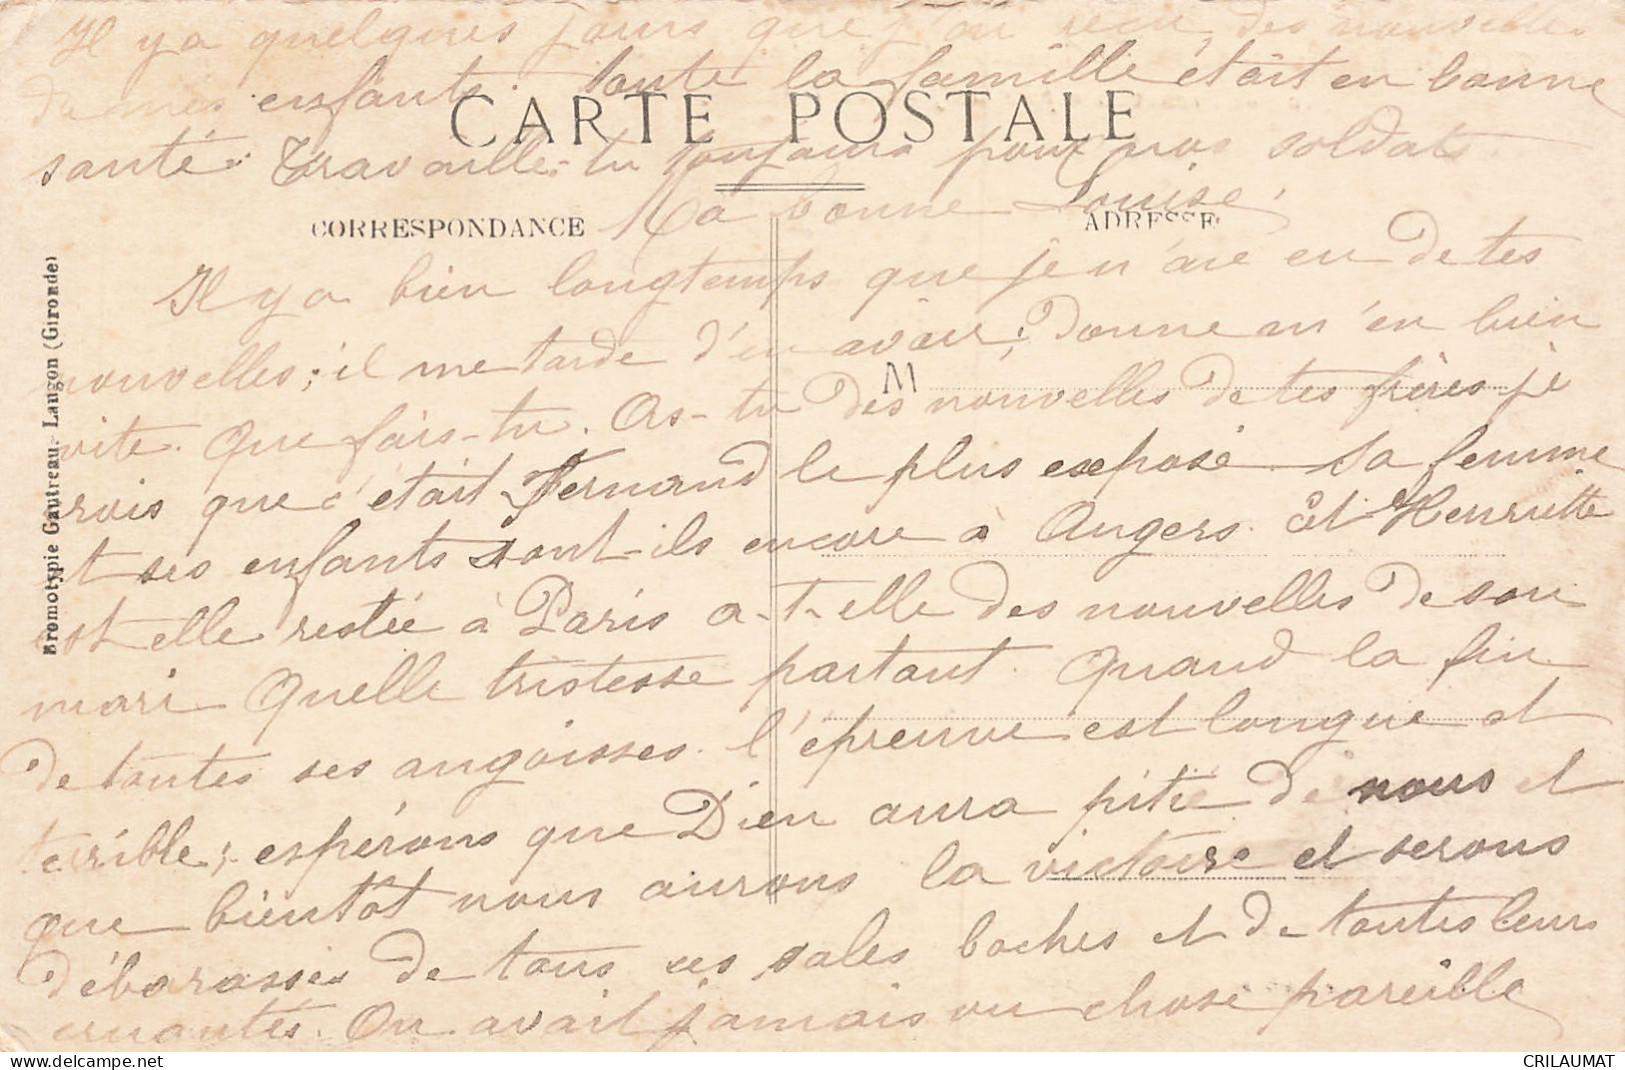 Il y a quelques jours que j'ai reçu des nouvelles
de mes enfants. toute la famille était en bonne
CARTE POSTALE
santé. Travaille-tu toujours pour nos soldats
Ma bonne Louise,
CORRESPONDANCE
ADRESSE
Il y a bien longtemps que je n'aie eu de tes
nouvelles; il me tarde d'en avoir; donne m'en bien
M
vite. Que fais-tu. As-tu des nouvelles de tes frères je
crois que c'était Fernand le plus exposé. Sa femme
et ses enfants sont-ils encore à Angers. Et Henriette
est elle restée à Paris a-t-elle des nouvelles de son
mari Quelle tristesse partout. Quand la fin
de toutes ses angoisses. l'épreuve est longue et
terrible; espérons que Dieu aura pitié de nous et
que bientôt nous aurons la victoire et serons
débarassés de tous ces sales boches et de toutes leurs
On avait jamais vu chose pareille
Bromotypie Gautreau, Langon (Gironde)
CRILAUMAT